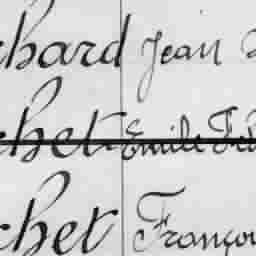 chard Jean
chet Emile
chet Françoi